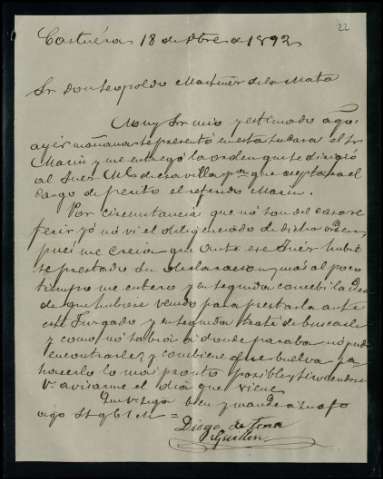 22
Castuera 18 de Obre de 1892
Sr. Don Leopoldo Martinez de la Mata
Muy Sr. mio y estimado ago:
ayer mañana se presentó en esta
Marin y me entregó la orden que se dirigió
al Juez Mpl de esa villa pa que aceptara el
cargo de perito el referido Marin.
Por circunstancias que nó son del caso re
ferir yó nó ví el diligenciado de dicha orden,
pues me creia que ante ese Juez hubie
se prestado su declaracion, y más al poco
tiempo me entero y en seguida concebí la idea
de que hubiese venido para prestarla ante
este Juzgado y en seguida traté de buscarle
y como nó sabia á donde paraba nó pude
encontrarle; y conviene que vuelva pa
hacerlo lo más pronto posible, sirviendose
V. avisarme el dia que viene
bien y mande á su afo
ago
Diego de Tena
Guillen